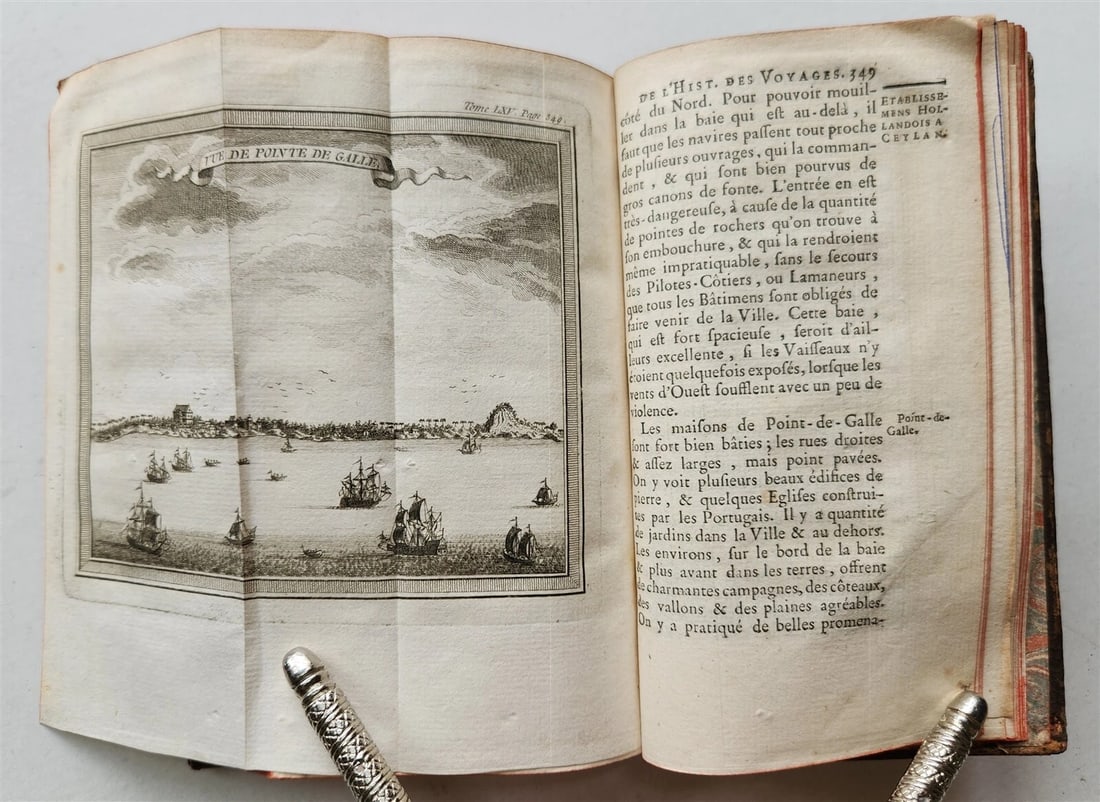 Tome LXV. Page 349.
VUE DE POINTE DE GALLE.
DE L'HIST. DES VOYAGES. 349
côté du Nord. Pour pouvoir mouil-
ler dans la baie qui eſt au-delà, il
faut que les navires paſſent tout proche
de pluſieurs ouvrages, qui la comman-
dent, & qui ſont bien pourvus de
gros canons de fonte. L'entrée en eſt
très-dangereuſe, à cauſe de la quantité
de pointes de rochers qu'on trouve à
ſon embouchure, & qui la rendroient
même impratiquable, ſans le ſecours
des Pilotes-Côtiers, ou Lamaneurs,
que tous les Bâtimens ſont obligés de
faire venir de la Ville. Cette baie,
qui eſt fort ſpacieuſe, ſeroit d'ail-
leurs excellente, ſi les Vaiſſeaux n'y
étoient quelquefois expoſés, lorſque les
vents d'Oueſt ſoufflent avec un peu de
violence.
Les maiſons de Point-de-Galle
ſont fort bien bâties; les rues droites
& aſſez larges, mais point pavées.
On y voit pluſieurs beaux édifices de
pierre, & quelques Egliſes conſtrui-
tes par les Portugais. Il y a quantité
de jardins dans la Ville & au dehors.
Les environs, ſur le bord de la baie
& plus avant dans les terres, offrent
de charmantes campagnes, des côteaux,
des vallons & des plaines agréables.
On y a pratiqué de belles promena-
ETABLISSE-
MENS HOL-
LANDOIS A
CEYLAN.
Point-de-
Galle.